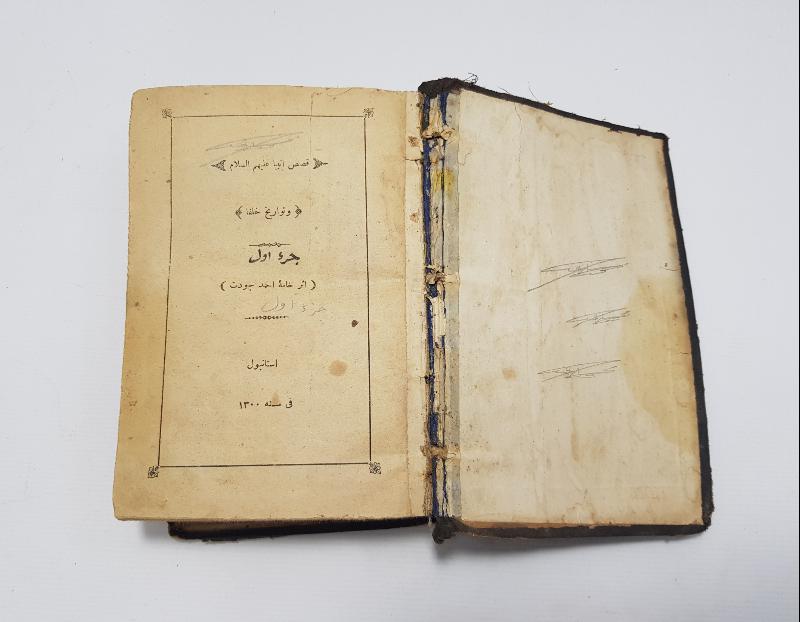 قصص انبيا عليهم السلام
وتواريخ خلفا
جزء اول
( اثر خامهٔ احمد جودت )
جزء اول
استانبول
فی سنه ١٣٠٠